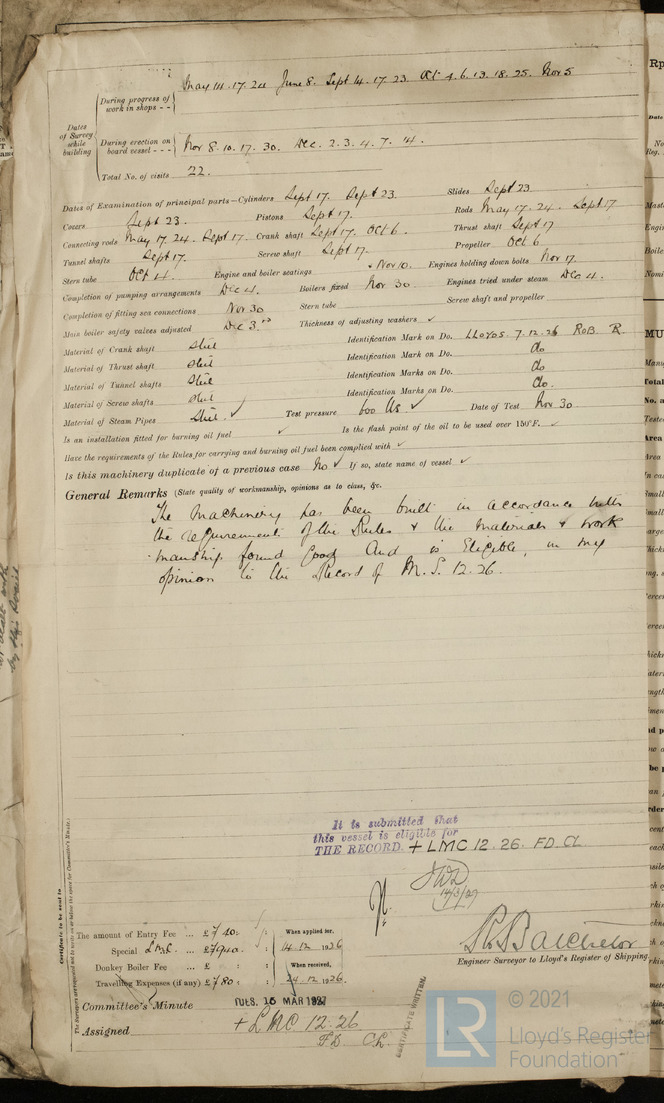 May 14. 17. 24 June 8. Sept 14. 17. 23. Oct 4. 6. 13. 18. 25. Nov 5
During progress of work in shops - -
Dates of Survey while building
During erection on board vessel - - -
Nov 8. 10. 17. 30. Dec. 2. 3. 4. 7. 14.
Total No. of visits 22.
Dates of Examination of principal parts—Cylinders Sept 17. Sept 23. Slides Sept 23
Covers Sept 23. Pistons Sept 17. Rods May 17. 24. Sept 17
Connecting rods May 17. 24. Sept 17. Crank shaft Sept 17. Oct 6. Thrust shaft Sept 17
Tunnel shafts Sept 17. Screw shaft Sept 17. Propeller Oct 6
Stern tube Oct 4. Engine and boiler seatings Nov 10. Engines holding down bolts Nov 17.
Completion of pumping arrangements Dec 4. Boilers fixed Nov 30. Engines tried under steam Dec 4.
Completion of fitting sea connections Nov 30 Stern tube Screw shaft and propeller
Main boiler safety valves adjusted Dec 3rd Thickness of adjusting washers ✓
Material of Crank shaft Steel Identification Mark on Do. LLOYDS. 7.12.26 ROB. R.
Material of Thrust shaft Steel Identification Mark on Do. do
Material of Tunnel shafts Steel Identification Marks on Do. do
Material of Screw shafts Steel Identification Marks on Do. do.
Material of Steam Pipes Steel. ✓ Test pressure 600 lbs ✓ Date of Test Nov 30
Is an installation fitted for burning oil fuel ✓ Is the flash point of the oil to be used over 150°F. ✓
Have the requirements of the Rules for carrying and burning oil fuel been complied with ✓
Is this machinery duplicate of a previous case No ✓ If so, state name of vessel ✓
General Remarks (State quality of workmanship, opinions as to class, &c.
The Machinery has been built in accordance with
the requirements of the Rules & the materials & work
manship found Good And is Eligible, in my
opinion to the Record of M.S. 12.26.
It is submitted that
this vessel is eligible for
THE RECORD. + LMC 12.26. FD CL
14/3/27
The amount of Entry Fee ... £ 7 40 : When applied for,
Special LMC ... £ : 14.12.1926
Donkey Boiler Fee ... £ : : When received,
Travelling Expenses (if any) £ 7 80 : 24.12.1926.
Engineer Surveyor to Lloyd's Register of Shipping
Committee's Minute TUES. 15 MAR 1927
Assigned + LMC 12.26
FD CL.
CERTIFICATE WRITTEN.
Certificate to be sent to
The Surveyors are requested not to write on or below the space for Committee's Minute.
LR © 2021
Lloyd's Register
Foundation